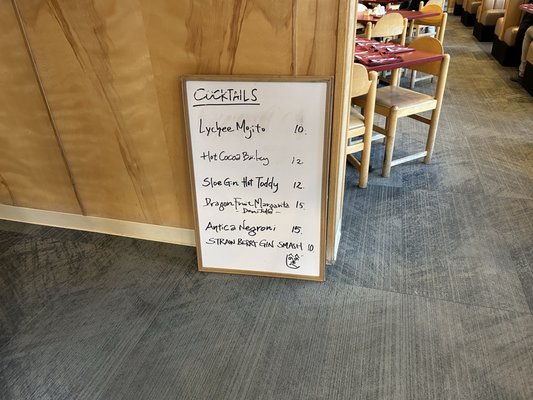 COCKTAILS
Lychee Mojito 10.
Hot Cocoa Bailey 12
Sloe Gin Hot Toddy 12.
Dragon Fruit Margarita 15.
Antica Negroni 15.
STRAWBERRY GIN SMASH 10